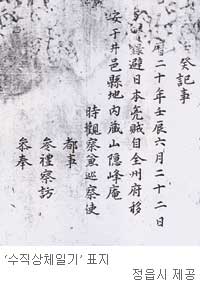 癸記事
曆二十年壬辰六月二十二日
避日本兇賊自全州府移
安于井邑縣地內藏山隱峰庵
時觀察兼巡察使
都事
參禮察訪
叅奉
‘수직상체일기’ 표지
정읍시 제공